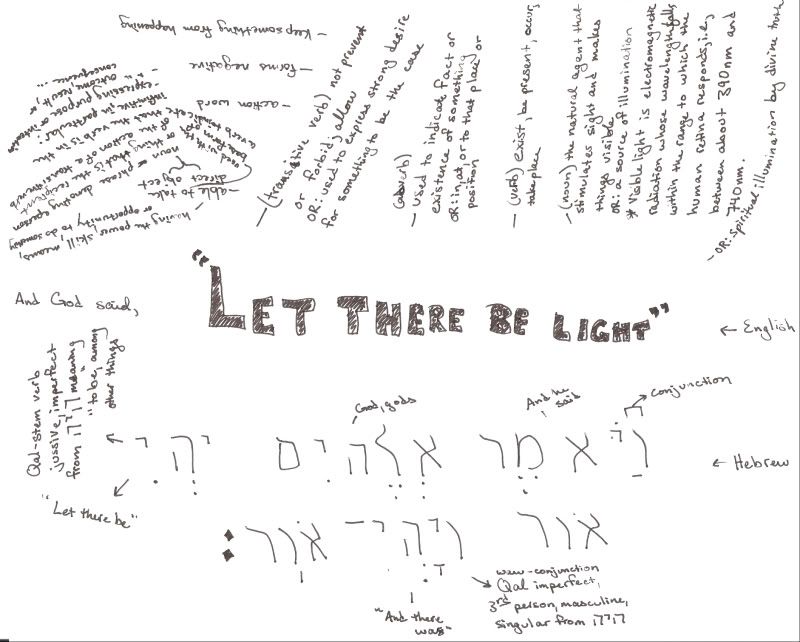 – Keep something from happening
– forms negative
– action word
direct object
– able to take
– having the power, skill, means,
or opportunity to do something
– (transitive verb) not prevent
or forbid; allow
OR: used to express strong desire
for something to be the case
(adverb)
– used to indicate fact or
existence of something
OR: in, at, or to that place or
position
– (verb) exist, be present, occur,
take place
– (noun) the natural agent that
stimulates sight and makes
things visible
OR: a source of illumination
* Visible light is electromagnetic
radiation whose wavelength falls
within the range to which the
human retina responds, i.e.,
between about 390nm and
740nm.
– OR: spiritual illumination by divine truth
And God said,
"LET THERE BE LIGHT"
← English
Qal-stem verb
jussive, imperfect
from היה meaning
"to be, among
other things
God, gods
And he
said
conjunction
וַיֹּאמֶר אֱלֹהִים יְהִי
← Hebrew
"Let there be"
אוֹר וַיְהִי־אוֹר׃
"And there
was"
waw-conjunction
Qal imperfect,
3rd person, masculine,
singular from היה